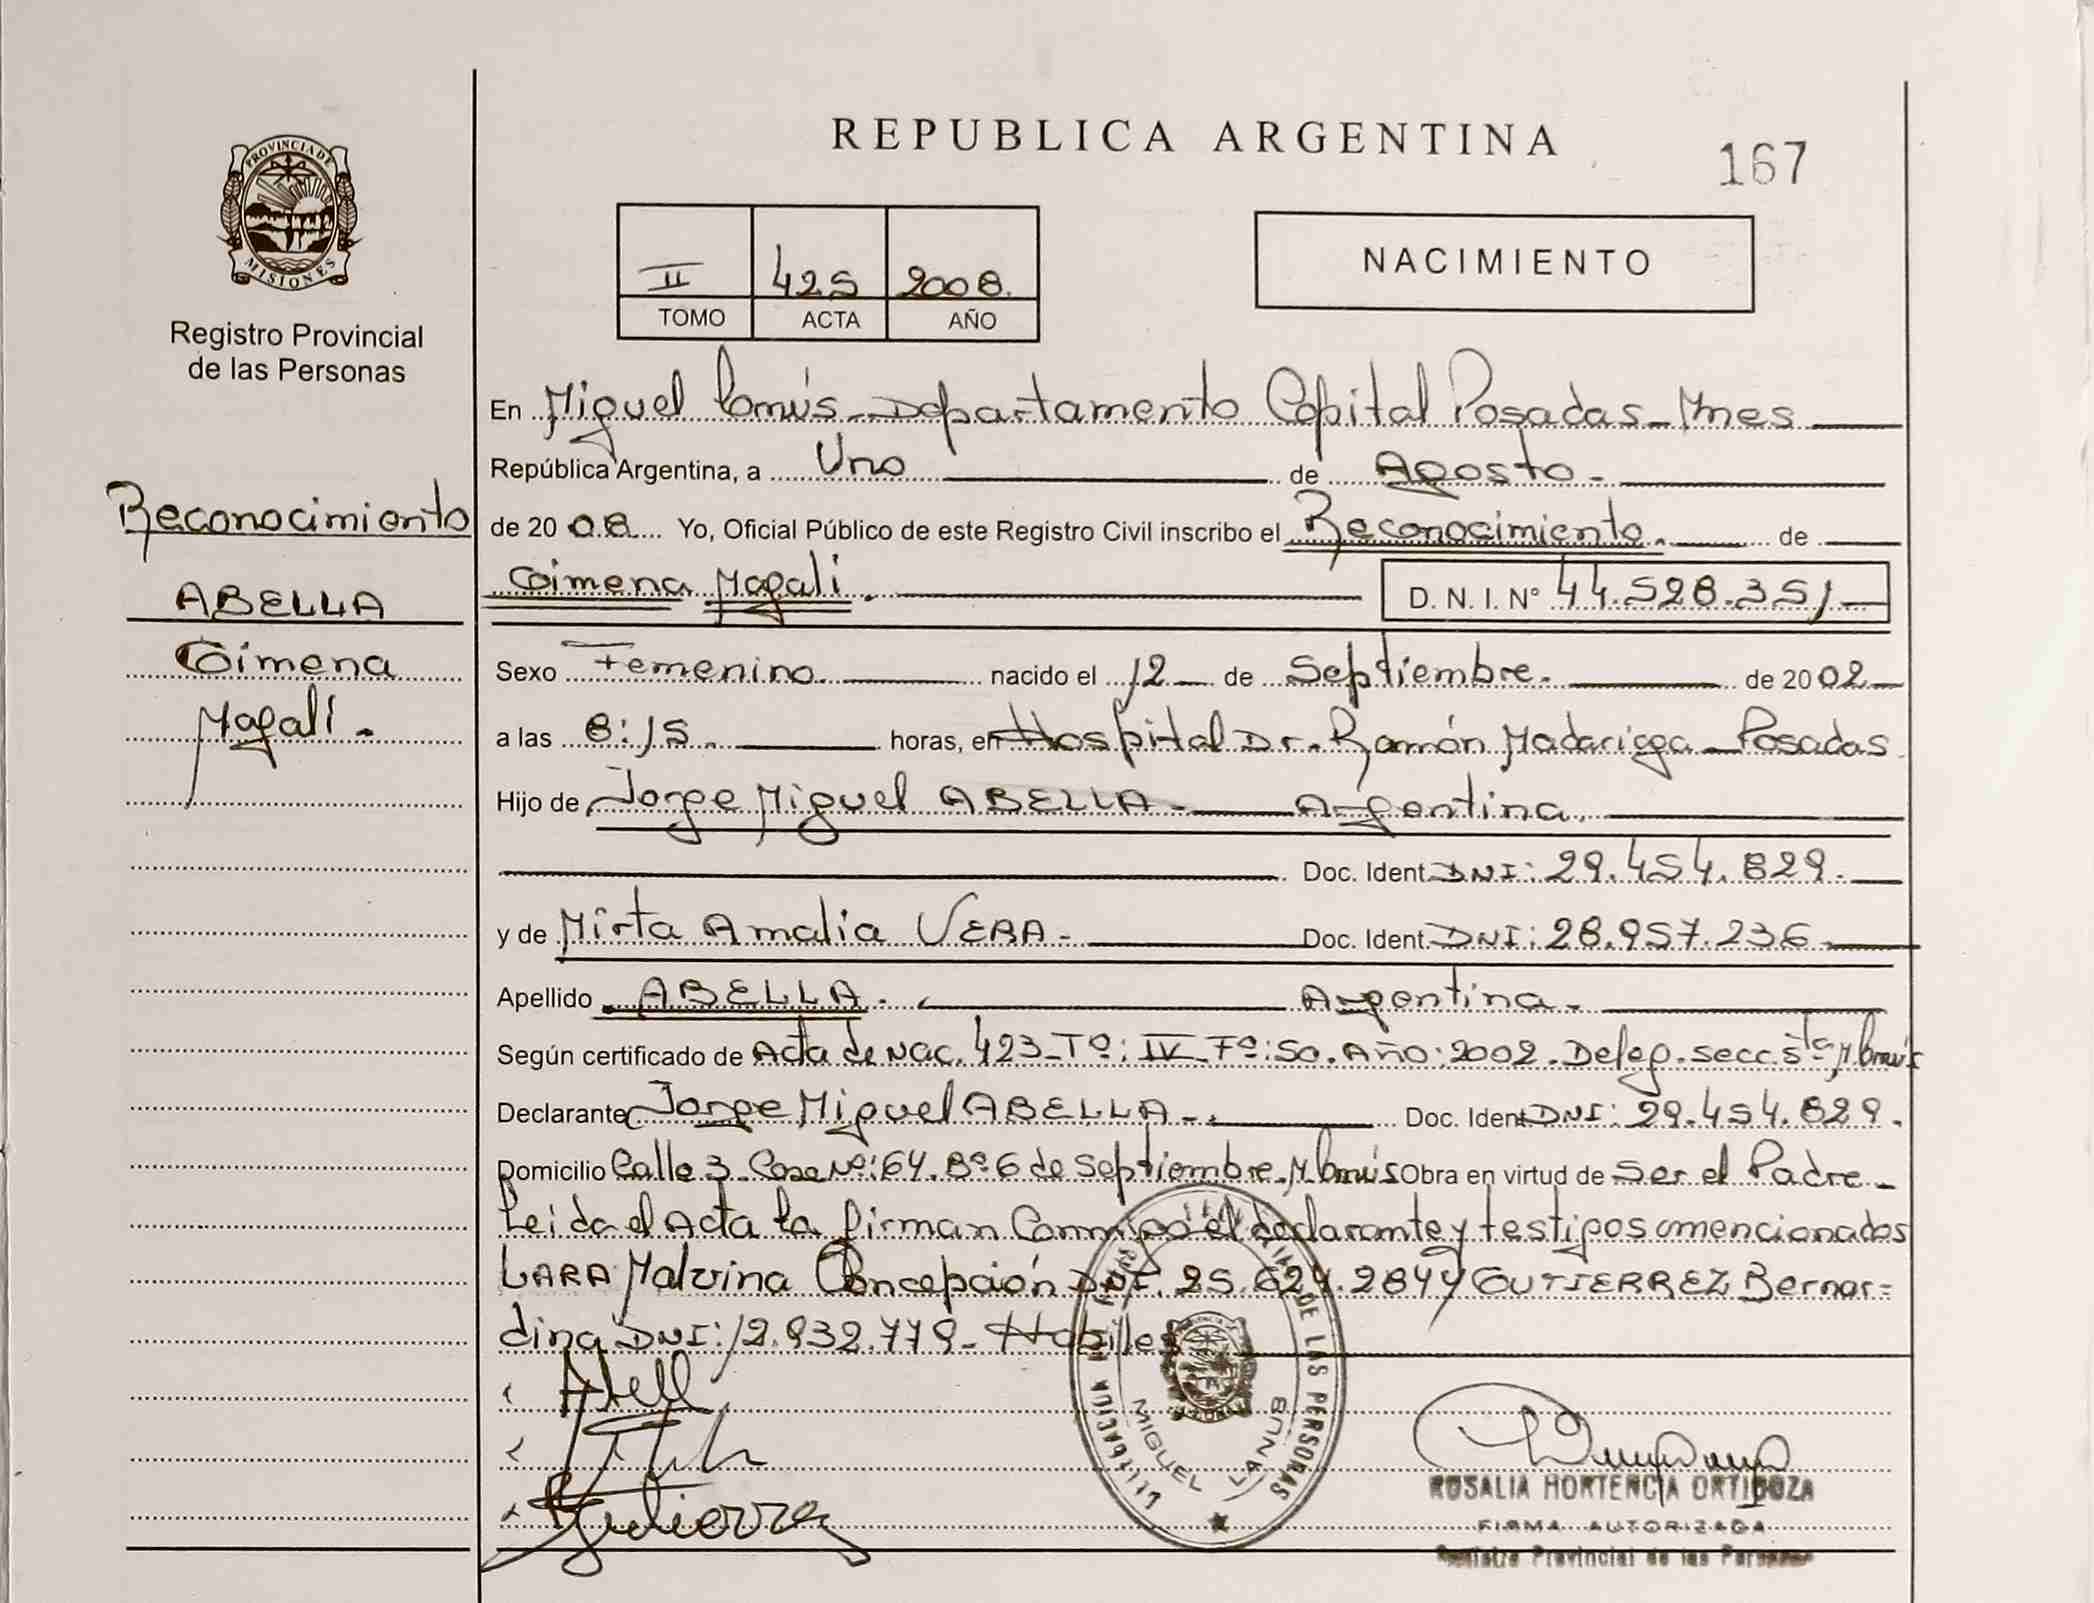 REPUBLICA ARGENTINA
167
PROVINCIA DE
MISIONES
Registro Provincial
de las Personas
II 425 2008.
TOMO ACTA AÑO
NACIMIENTO
En Miguel Lanús - Departamento Capital Posadas - Mnes
República Argentina, a Uno de Agosto -
de 20 08 Yo, Oficial Público de este Registro Civil inscribo el Reconocimiento. de
Gimena Magali. D. N. I. Nº 44.528.351
Reconocimiento
ABELLA
Gimena
Magalí.
Sexo Femenino nacido el 12 de Septiembre. de 20 02
a las 8:15. horas, en Hospital Dr. Ramón Madariaga - Posadas
Hijo de Jorge Miguel ABELLA - Argentina.
Doc. Ident. DNI: 29.454.829.
y de Mirta Amalia VERA - Doc. Ident. DNI: 28.957.236
Apellido ABELLA. Argentina.
Según certificado de Acta de Nac. 423 - Tº: IV - Fº: 50. Año: 2002. Deleg. secc. 5ta M. Lanús
Declarante Jorge Miguel ABELLA - Doc. Ident DNI: 29.454.829.
Domicilio Calle 3 - Casa Nº: 64. Bº 6 de Septiembre - M. Lanús Obra en virtud de Ser el Padre -
Leida el Acta la firman Conmigo el declarante y testigos amencionados
LARA Malvina Concepción DNI. 25.624.284 y GUTIERREZ Bernar=
dina DNI: 12.932.779 - Habiles
Abell
Gutierrez
DE LAS PERSONAS
MIGUEL LANUS
ROSALIA HORTENCIA ORTIGOZA
FIRMA AUTORIZADA
Registro Provincial de las Personas